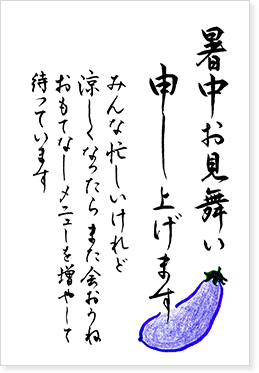 暑中お見舞い
申し上げます
みんな忙しいけれど
涼しくなったらまた会おうね
おもてなしメニューを増やして
待っています